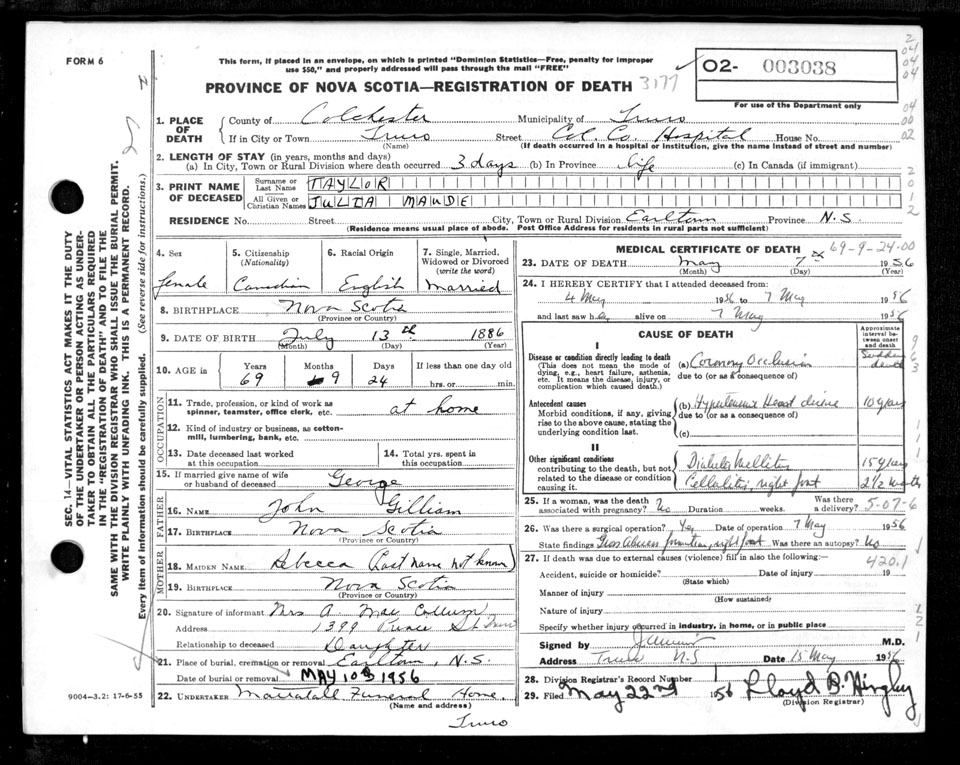 FORM 6
This form, if placed in an envelope, on which is printed "Dominion Statistics—Free, penalty for improper
use $50," and properly addressed will pass through the mail "FREE"
PROVINCE OF NOVA SCOTIA—REGISTRATION OF DEATH 3177
02- 003038
For use of the Department only
1. PLACE OF DEATH County of Colchester Municipality of Truro
If in City or Town Truro Street Col. Co. Hospital House No.
(Name) (If death occurred in a hospital or institution, give the name instead of street and number)
2. LENGTH OF STAY (in years, months and days)
(a) In City, Town or Rural Division where death occurred 3 days (b) In Province life (c) In Canada (if immigrant)
3. PRINT NAME OF DECEASED Surname or Last Name TAYLOR
All Given or Christian Names JULIA MAUDE
RESIDENCE No. Street City, Town or Rural Division Earltown Province N.S.
(Residence means usual place of abode. Post Office Address for residents in rural parts not sufficient)
4. Sex female
5. Citizenship (Nationality) Canadian
6. Racial Origin English
7. Single, Married, Widowed or Divorced (write the word) Married
8. BIRTHPLACE Nova Scotia
(Province or Country)
9. DATE OF BIRTH July 13th 1886
(Month) (Day) (Year)
10. AGE in Years 69 Months 9 Days 24 If less than one day old hrs. or min.
OCCUPATION
11. Trade, profession, or kind of work as spinner, teamster, office clerk, etc. at home
12. Kind of industry or business, as cotton-mill, lumbering, bank, etc.
13. Date deceased last worked at this occupation
14. Total yrs. spent in this occupation
15. If married give name of wife or husband of deceased George
FATHER
16. NAME John Gilliam
17. BIRTHPLACE Nova Scotia
(Province or Country)
MOTHER
18. MAIDEN NAME Rebecca (last name not known)
19. BIRTHPLACE Nova Scotia
(Province or Country)
20. Signature of informant Mrs A. Mac Collum
Address 1399 Prince St Truro
Relationship to deceased Daughter
21. Place of burial, cremation or removal Earltown, N.S.
Date of burial or removal MAY 10 1956
22. UNDERTAKER Mattatall Funeral Home
(Name and address)
Truro
9004-3.2: 17-6-55
MEDICAL CERTIFICATE OF DEATH 69-9-24-00
23. DATE OF DEATH May 7 1956
(Month) (Day) (Year)
24. I HEREBY CERTIFY that I attended deceased from:
4 May 1956 to 7 May 1956
and last saw her alive on 7 May 1956
CAUSE OF DEATH
Approximate interval between onset and death
I
Disease or condition directly leading to death
(This does not mean the mode of dying, e.g., heart failure, asthenia, etc. It means the disease, injury, or complication which caused death.)
(a) Coronary Occlusion Sudden death
due to (or as a consequence of)
Antecedent causes
Morbid conditions, if any, giving rise to the above cause, stating the underlying condition last.
(b) Hypertensive Heart disease 10 years
due to (or as a consequence of)
(c)
II
Other significant conditions
contributing to the death, but not related to the disease or condition causing it.
Diabetes Mellitus 15 years
Cellulitis, right foot 2 1/2 months
25. If a woman, was the death associated with pregnancy? No Duration weeks. Was there a delivery? 5-07-6
26. Was there a surgical operation? Yes Date of operation 7 May 1956
State findings right foot Was there an autopsy? No
27. If death was due to external causes (violence) fill in also the following:
420.1
Accident, suicide or homicide? Date of injury 19
(State which)
Manner of injury
(How sustained)
Nature of injury
Specify whether injury occurred in industry, in home, or in public place
Signed by M.D.
Address Truro N.S. Date 15 May 1956
28. Division Registrar's Record Number
29. Filed May 22nd 1956 Lloyd B. Hingley
(Division Registrar)
SEC. 14—VITAL STATISTICS ACT MAKES IT THE DUTY
OF THE UNDERTAKER OR PERSON ACTING AS UNDER-
TAKER TO OBTAIN ALL THE PARTICULARS REQUIRED
IN THE "REGISTRATION OF DEATH" AND TO FILE THE
SAME WITH THE DIVISION REGISTRAR WHO SHALL ISSUE THE BURIAL PERMIT.
WRITE PLAINLY WITH UNFADING INK. THIS IS A PERMANENT RECORD.
Every item of information should be carefully supplied. (See reverse side for instructions.)